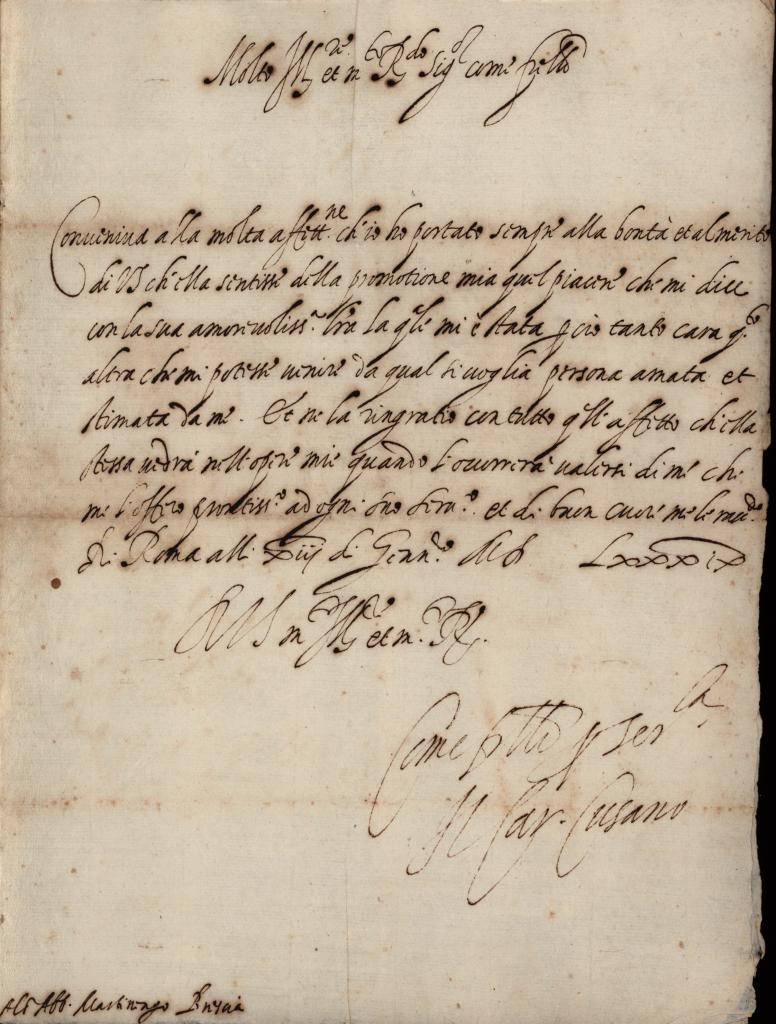 Molto Ill.re et m.to R.do Sig.r come fr̃ello
Conueniua alla molta affett.ne ch'io ho portato sempre alla bontà et al merito
di VS ch'ella sentisse della promotione mia quel piacere che mi dice
con la sua amoreuoliss.a l̃ra la q̃le mi è stata p̱ciò tanto cara q.to
altra che mi potesse uenire da qual si uoglia persona amata et
stimata da me. Et ne la ringratio con tutto q̃ll'affetto ch'ella
stessa uedrà nell'opere mie quando l'occorrerà ualersi di me che
me l'offero prontiss.o ad ogni suo seru.o et di buon cuore me le racc.do
Di Roma alli xiij di Genn.o LXXXIX
Di VS m. Ill.re et m. R.da
Come fr̃ello p̱ ser.la
Il Car. Cusano
All'Abb. Martinengo Brescia